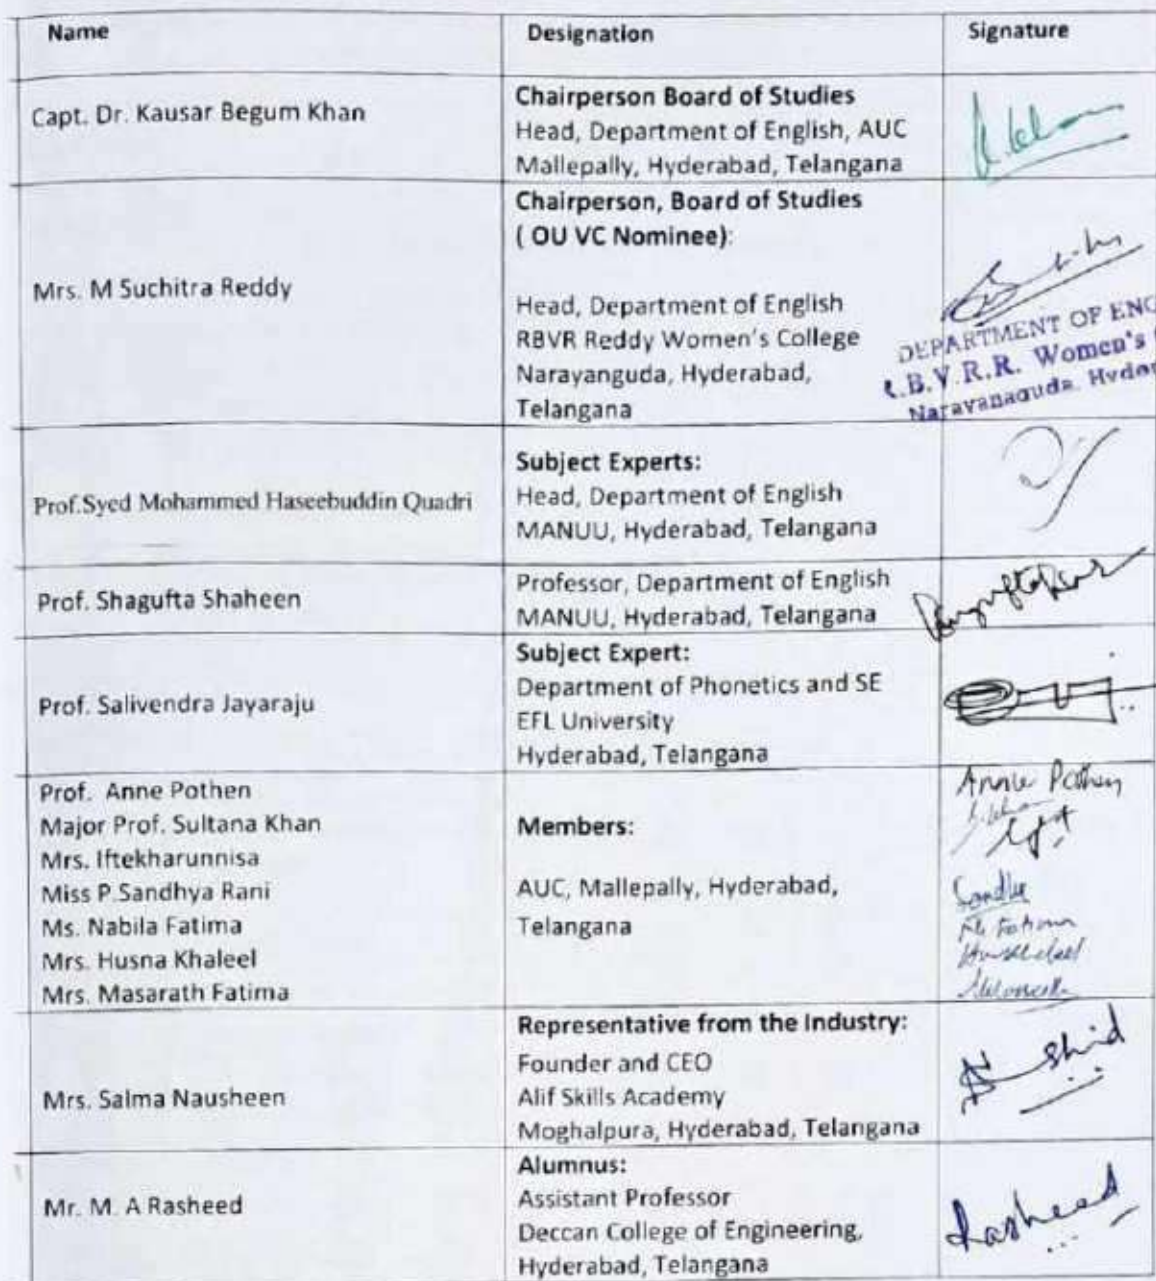 Name Designation Signature
Capt. Dr. Kausar Begum Khan
Chairperson Board of Studies
Head, Department of English, AUC
Mallepally, Hyderabad, Telangana
Mrs. M Suchitra Reddy
Chairperson, Board of Studies
( OU VC Nominee):
Head, Department of English
RBVR Reddy Women's College
Narayanguda, Hyderabad,
Telangana
DEPARTMENT OF ENG
.B.V.R.R. Women's
Narayanaguda, Hyder
Prof.Syed Mohammed Haseebuddin Quadri
Subject Experts:
Head, Department of English
MANUU, Hyderabad, Telangana
Prof. Shagufta Shaheen
Professor, Department of English
MANUU, Hyderabad, Telangana
Prof. Salivendra Jayaraju
Subject Expert:
Department of Phonetics and SE
EFL University
Hyderabad, Telangana
Prof. Anne Pothen
Major Prof. Sultana Khan
Mrs. Iftekharunnisa
Miss P.Sandhya Rani
Ms. Nabila Fatima
Mrs. Husna Khaleel
Mrs. Masarath Fatima
Members:
AUC, Mallepally, Hyderabad,
Telangana
Annie Pothen
Fatima
Mrs. Salma Nausheen
Representative from the Industry:
Founder and CEO
Alif Skills Academy
Moghalpura, Hyderabad, Telangana
Mr. M. A Rasheed
Alumnus:
Assistant Professor
Deccan College of Engineering,
Hyderabad, Telangana
Rasheed